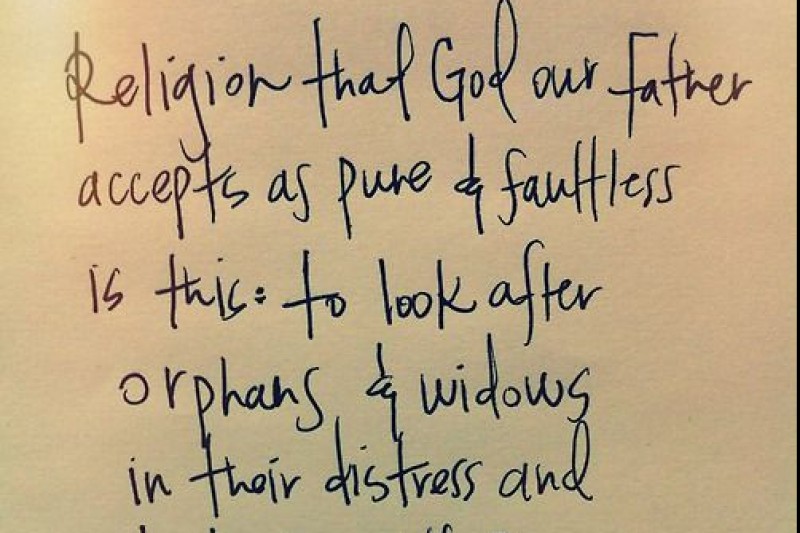 Religion that God our Father
accepts as pure & faultless
is this: to look after
orphans & widows
in their distress and